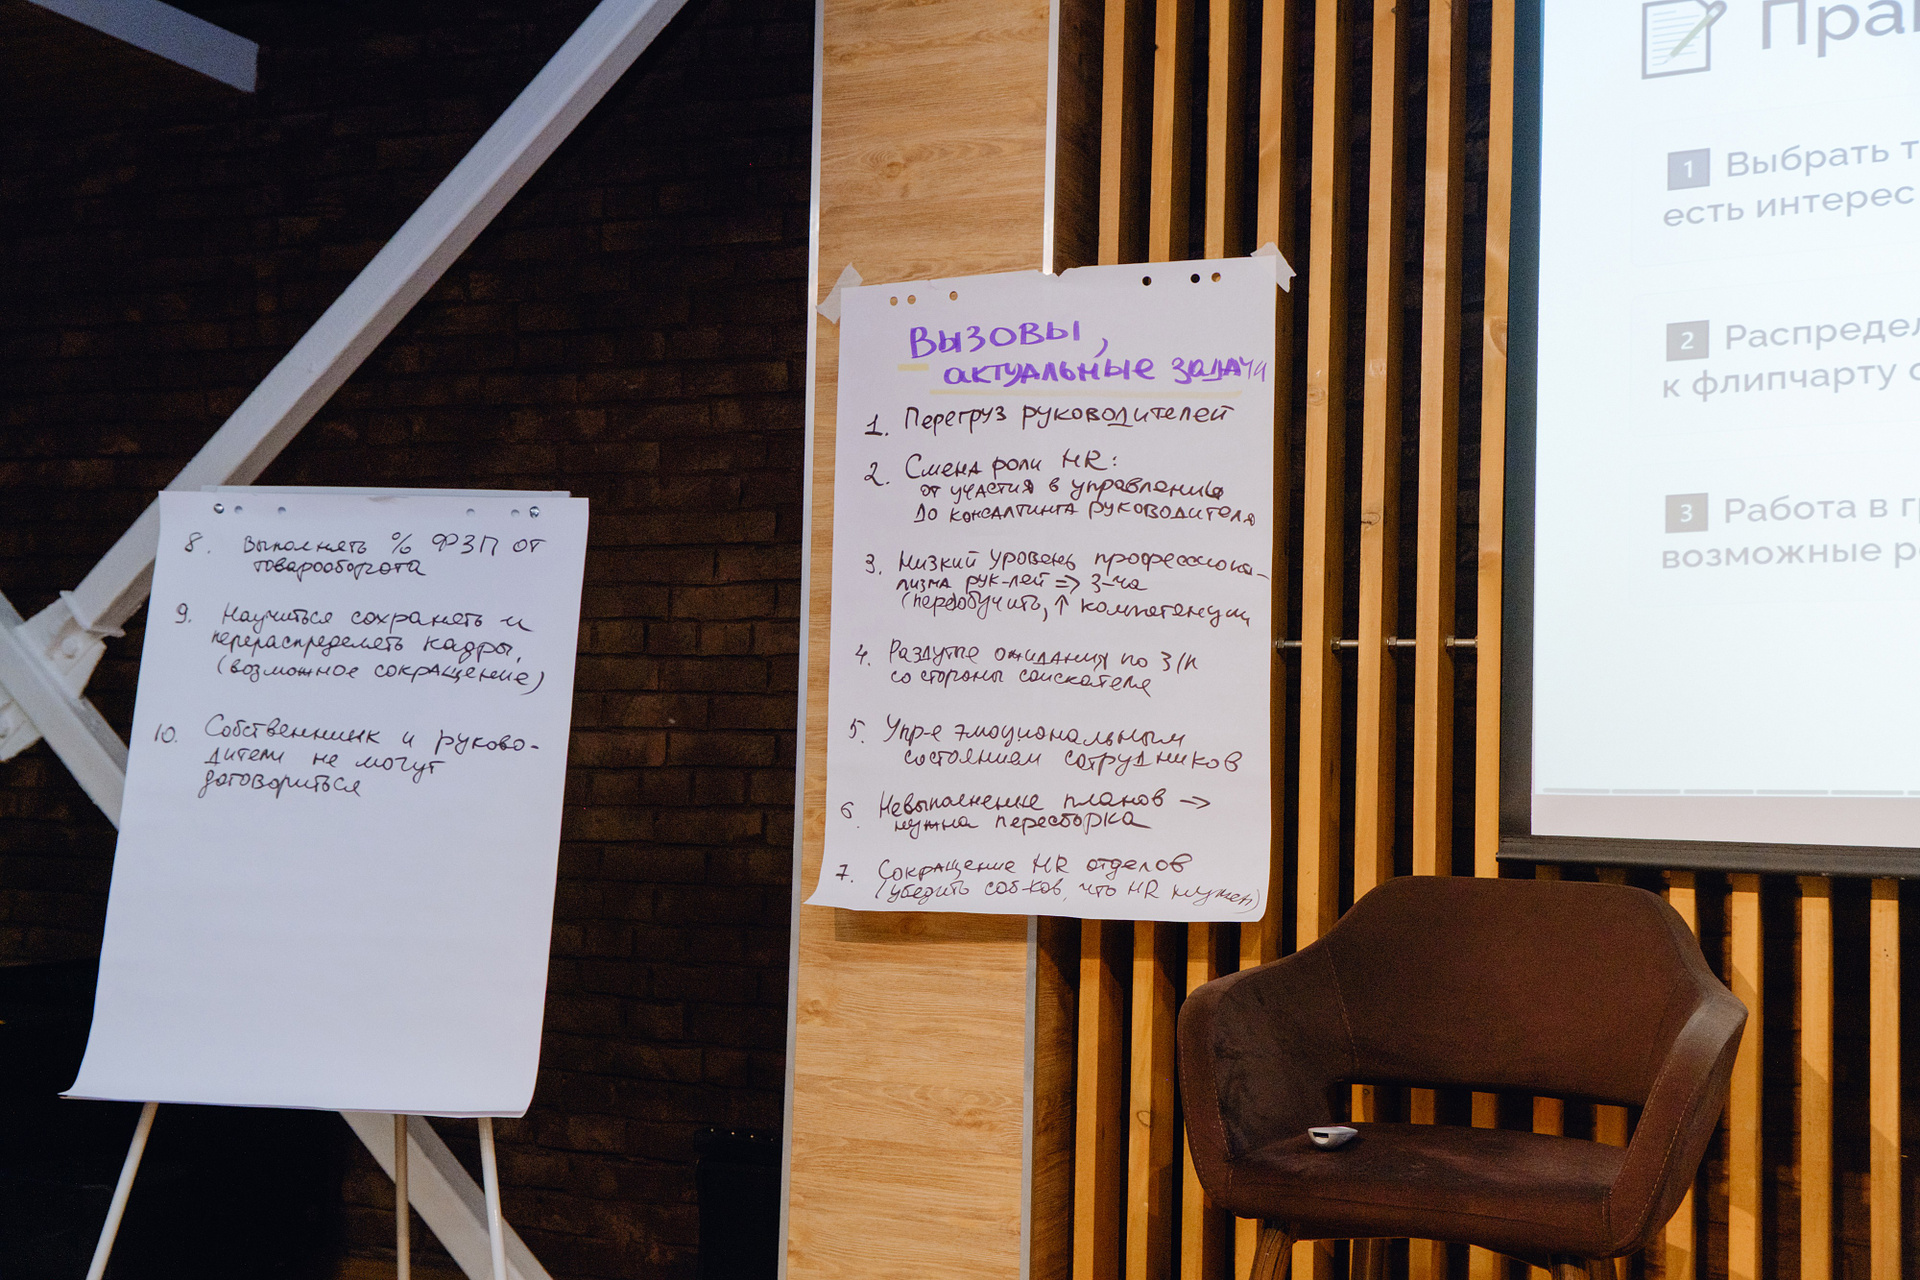 8. Выполнять % ФЗП от
товарооборота
9. Научиться сохранять и
перераспределять кадры,
(возможное сокращение)
10. Собственник и руково-
дители не могут
договориться
Вызовы,
актуальные задачи
1. Перегруз руководителей
2. Смена роли HR:
от участия в управлении
до консалтинга руководителя
3. Низкий уровень профессиона-
лизма рук-лей => з-ча
(переобучить, ↑ компетенции
4. Раздутые ожидания по з/п
со стороны соискателя
5. Упр-е эмоциональным
состоянием сотрудников
6. Невыполнение планов →
нужна пересборка
7. Сокращение HR отделов
(убедить соб-ков, что HR нужен)
Пра
1 Выбрать т
есть интерес
2 Распредел
к флипчарту с
3 Работа в г
возможные р